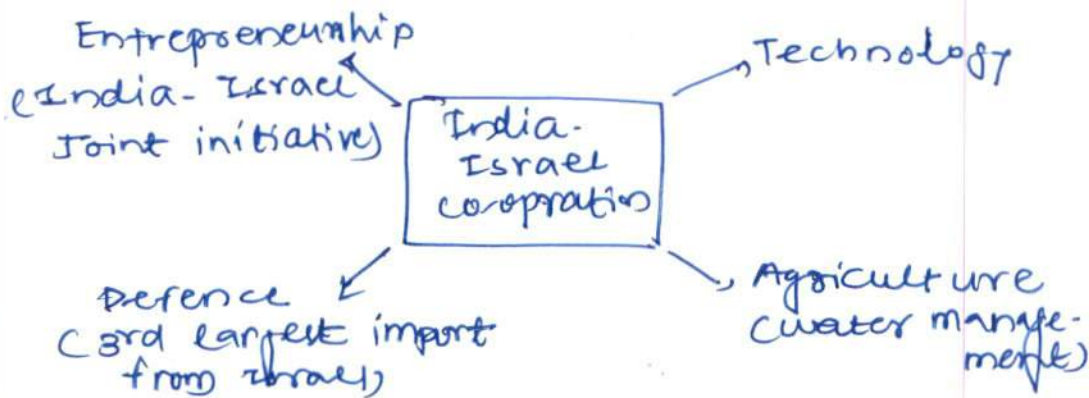 Entrepreneurship
(India - Israel
Joint initiative)
Technology
India -
Israel
co-opration
Defence
(3rd largest import
from Israel)
Agriculture
(water manage-
ment)